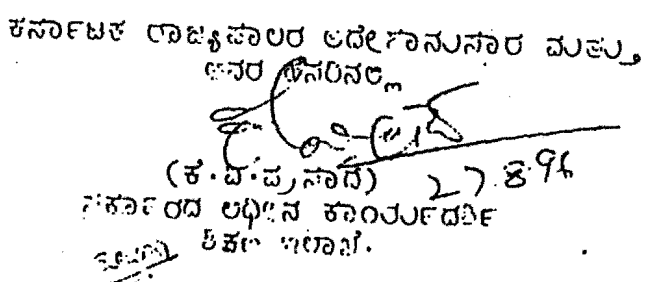 ಕರ್ನಾಟಕ ರಾಜ್ಯಪಾಲರ ಆದೇಶಾನುಸಾರ ಮತ್ತು
ಅವರ ಹೆಸರಿನಲ್ಲಿ
(ಕ.ವಿ.ಪ್ರಸಾದ) 27.8.96
ಸರ್ಕಾರದ ಅಧೀನ ಕಾರ್ಯದರ್ಶಿ
ಶಿಕ್ಷಣ ಇಲಾಖೆ.